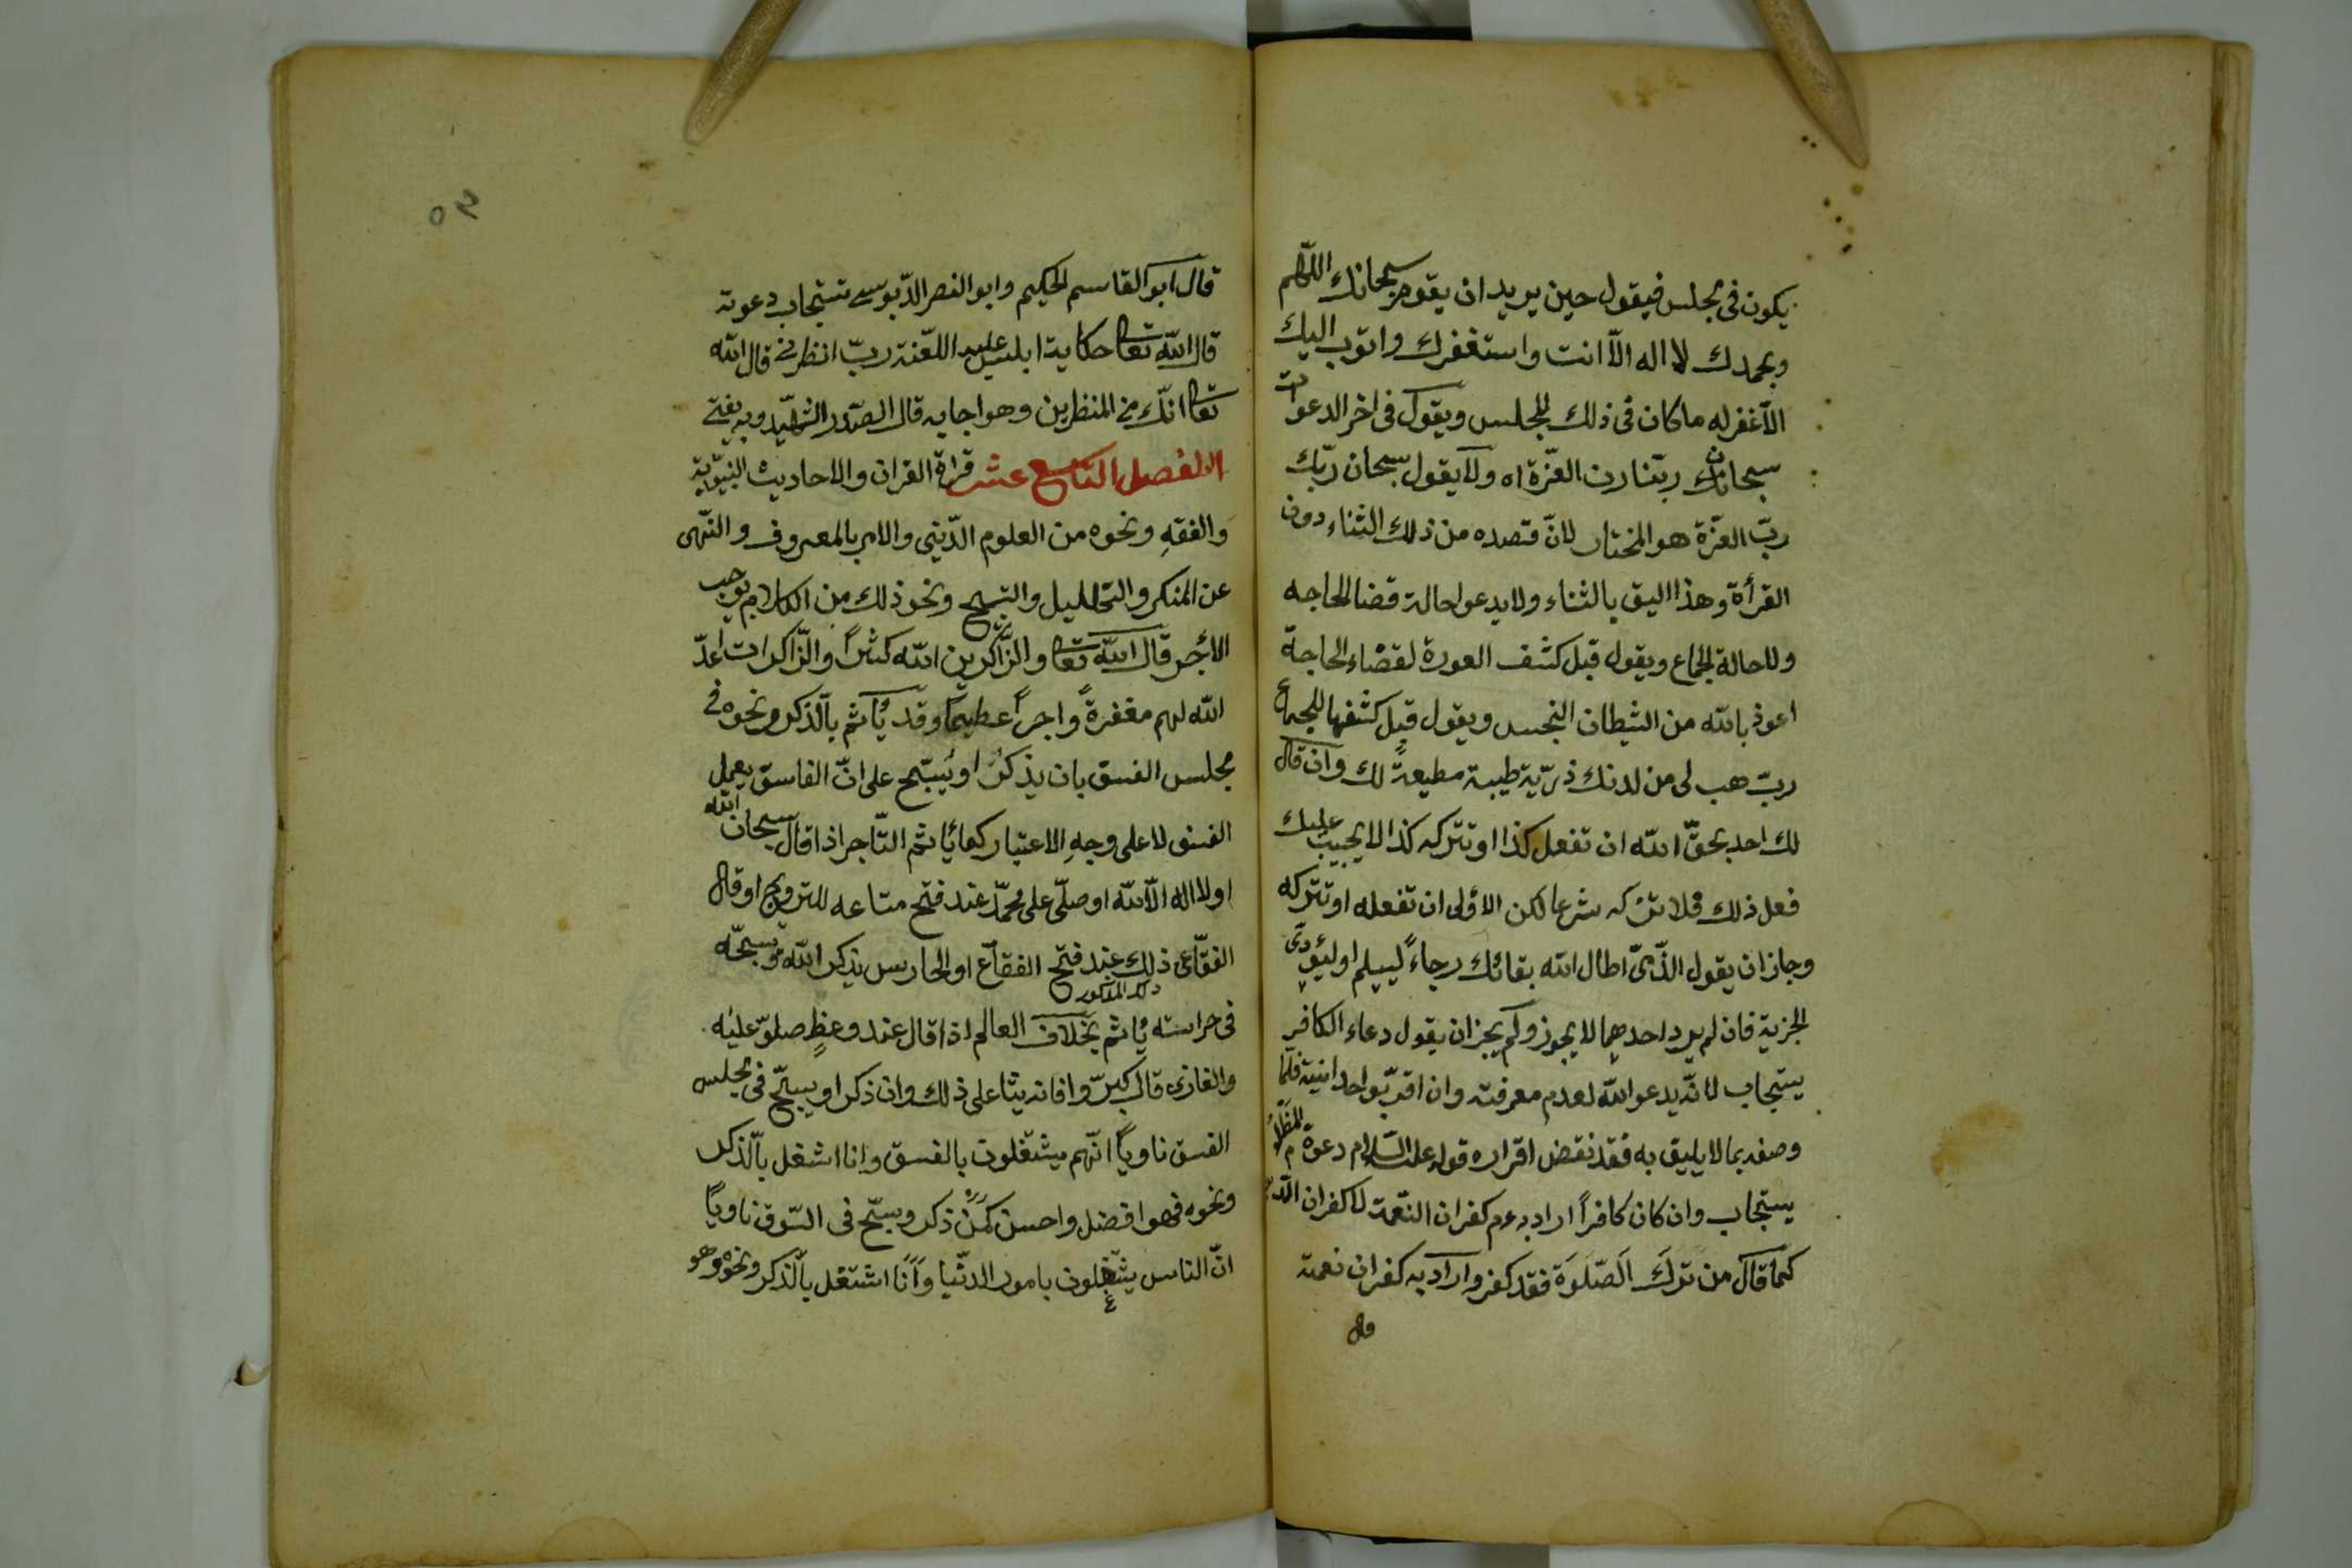 يكون فى مجلس فيقول حين يريد ان يقوم سبحانك اللّهم
وبحمدك لا اله الّا انت واستغفرك واتوب اليك
الّا غفر له ما كان فى ذلك المجلس ويقول فى اخر الدعوات
سبحانك ربّنا رب العزّة اه ولا يقول سبحان ربّك
ربّ العزّة هو المختار لانّ قصده من ذلك الثناء دون
القرأة وهذا اليق بالثناء ولا يدعو لحالة قضا الحاجه
ولا حالة الجماع ويقول قبل كشف العورة لقضاء الحاجة
اعوذ بالله من الشيطان النجس ويقول قبل كشفها للجماع
ربّ هب لى من لدنك ذرّيّة طيبة مطيعةً لك وان قال
لك احد بحقّ الله ان تفعل كذا او تتركه كذا لا يجب عليك
فعل ذلك فلا تركه شرعا لكن الاولى ان تفعله او تتركه
وجاز ان يقول الذّمّى اطال الله بقائك رجاءً ليسلم او ليؤدى
الجزية فان لم يرد احدهما لا يجوز ولم يجز ان يقول دعاء الكافر
يستجاب لانّه يدعو الله لعدم معرفته وان اقرّ بواحدانيته فلمّا
وصفه بما لا يليق به فقد نقض اقراره قوله عليه السّلام دعوة المظلوم
يستجاب وان كان كافراً اراد به عم كفران النّعمة لا كفران الدّين
كما قال من ترك الصّلوة فقد كفر واراد به كفران نعمة
قال
٥٢
قال ابو القاسم الحكيم وابو النصر الدّبوسى تستجاب دعوته
قال الله تعالى حكاية ابليس عليه اللّعنة ربّ انظرنى قال الله
تعالى انّك من المنظرين وهو اجابه قال الصّدر الشّهيد وبه يفتى
الفصل التاسع عشر قراة القران والاحاديث النبّوية
والفقهِ ونحوه من العلوم الدّينى والامر بالمعروف والنّهى
عن المنكر والتهليل والتسبيح ونحو ذلك من الكلام يوجب
الاجر قال الله تعالى والذّاكرين الله كثيراً والذّاكرات اعدّ
الله لهم مغفرةً واجراً عظيما وقد يُأثم بالذّكر ونحوه فى
مجلس الفسق بان يذكرُ او يُسبّح على انّ الفاسق يعمل
الفسق لا على وجهِ الاعتبار كما يُاثم التّاجر اذا قال سبحان الله
او لا اله الّا الله او صلّى على محمّد عند فتح متاعه للترويج او قال
الفقّاعى ذلك عند فتح الفقّاع او الحارس يذكر الله ويسبحّه
ذلك المذكور
فى حراسته يُاثم بخلاف العالم اذا قال عند وعظٍ صلوّ عليه
والغازى قال كبرّوا فانه يثا على ذلك وان ذكر او يسبّح فى مجلس
الفسق ناوياً انّهم يشتغلون بالفسق وانا اشغل بالّذكر
ونحوه فهو افضل واحسن كمن ذكر وسبّح فى السّوق ناوياً
انّ الناس يشتغلون بامور الدنّيا وأنا اشتغل بالّذكر ونحوه وهو